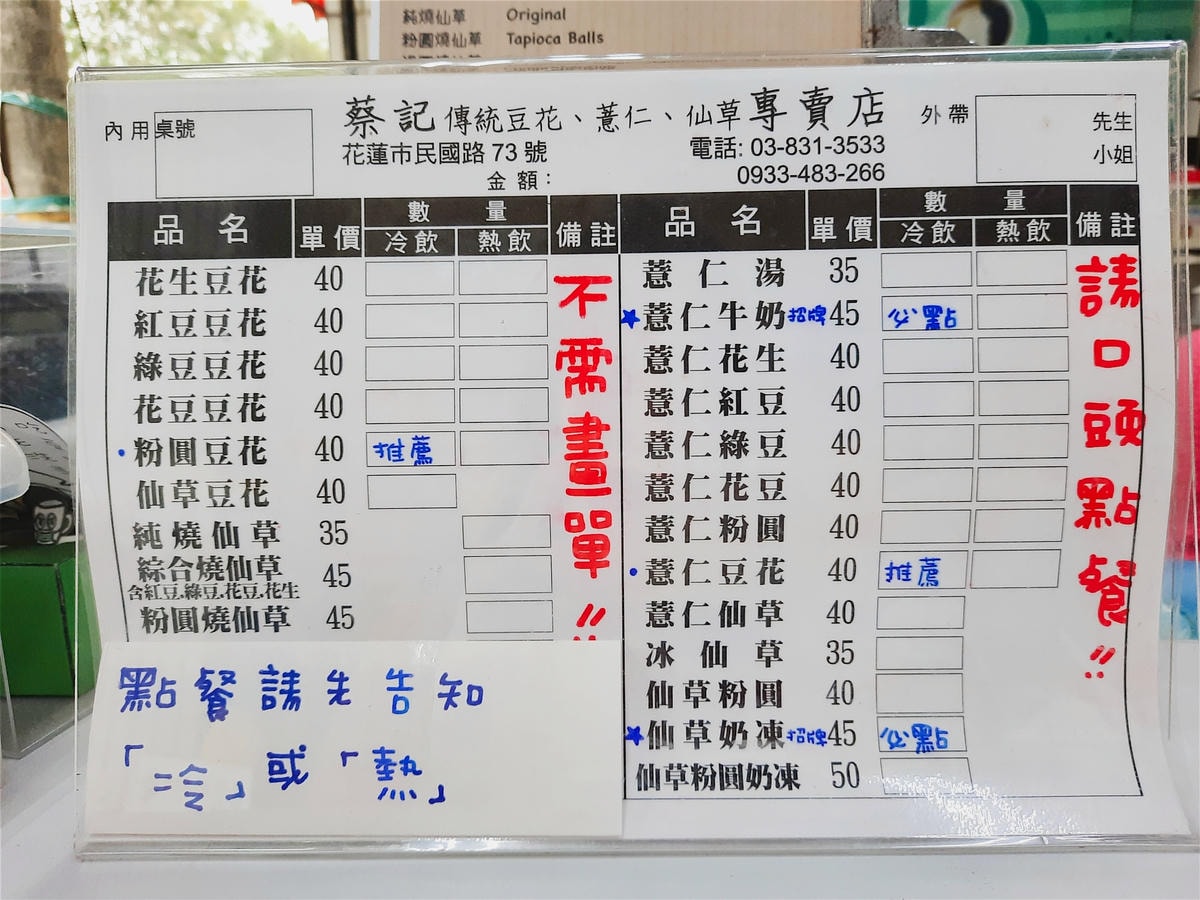 純燒仙草 Original
粉圓燒仙草 Tapioca Balls
內用桌號
蔡記傳統豆花、薏仁、仙草專賣店
外帶
先生
小姐
花蓮市民國路 73 號
電話: 03-831-3533
0933-483-266
金額:
品名 單價 數量 備註
冷飲 熱飲
花生豆花 40
紅豆豆花 40
綠豆豆花 40
花豆豆花 40
・粉圓豆花 40 推薦
仙草豆花 40
純燒仙草 35
綜合燒仙草 45
含紅豆.綠豆.花豆.花生
粉圓燒仙草 45
不需畫單!!
點餐請先告知
「冷」或「熱」
品名 單價 數量 備註
冷飲 熱飲
薏仁湯 35
★薏仁牛奶招牌45 必點
薏仁花生 40
薏仁紅豆 40
薏仁綠豆 40
薏仁花豆 40
薏仁粉圓 40
・薏仁豆花 40 推薦
薏仁仙草 40
冰仙草 35
仙草粉圓 40
★仙草奶凍招牌45 必點
仙草粉圓奶凍 50
請口頭點餐!!